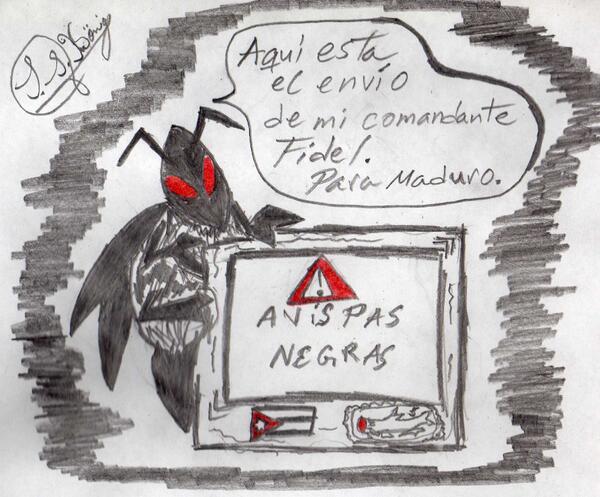 Aquí esta
el envío
de mi comandante
Fidel.
Para Maduro.
!
AVISPAS
NEGRAS